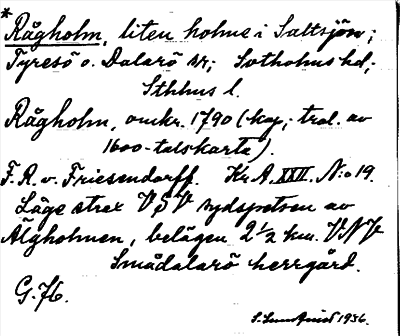 *
Rågholm, liten holme i Saltsjön;
Tyresö o. Dalarö sr; Sotholms hd,
Sthlms l.
Rågholm, omkr. 1790 (kop; trol. av
1600-talskarta).
F. A. v. Friesendorff. Kr. A. XXII. N:o 19.
Läge strax VSV sydspetsen av
Älgholmen, belägen 2 1/2 km. VNV
Smådalarö herrgård.
G. 76.
1936.